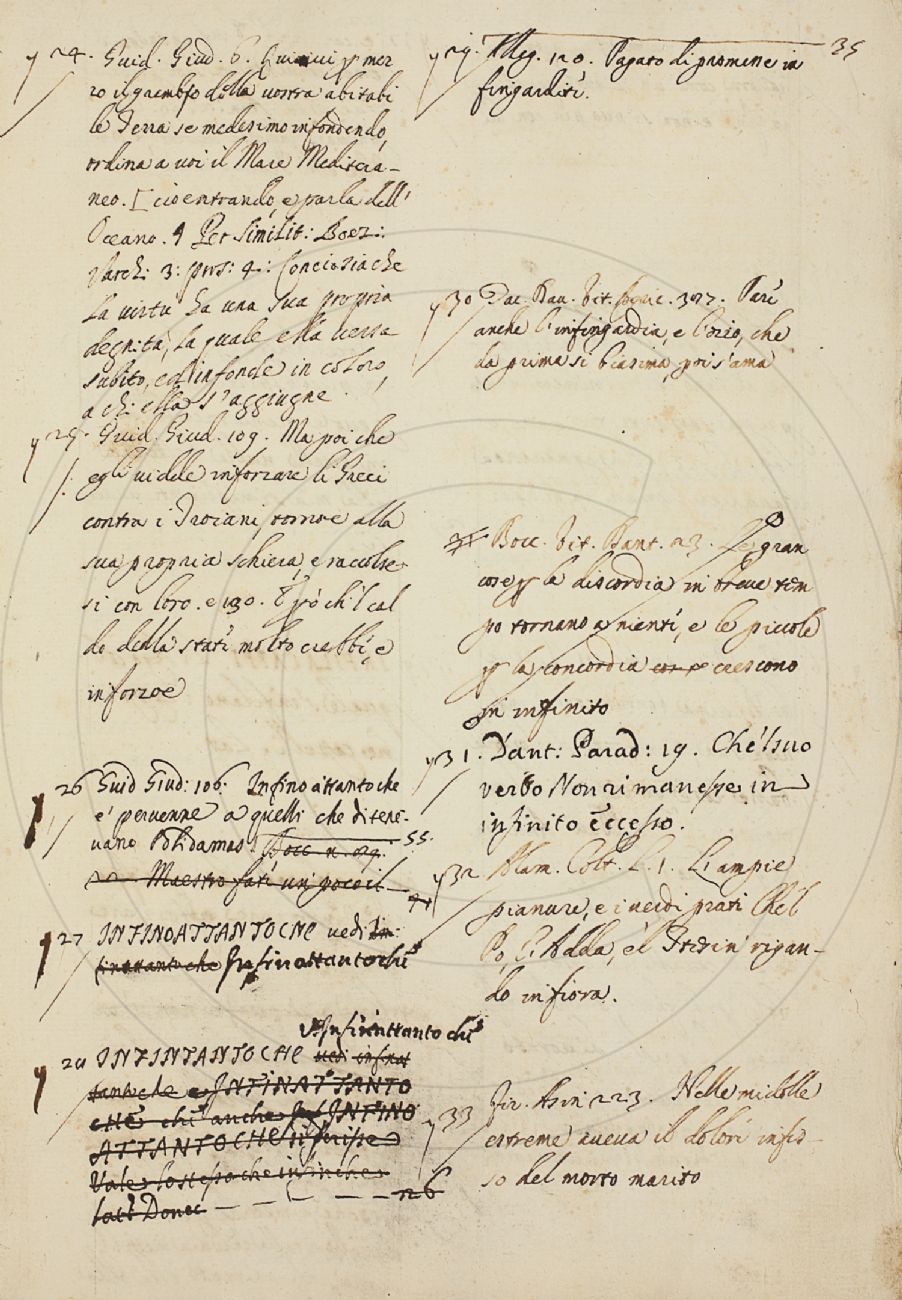 24. Guid. Giud. 6. Quivi per mez
zo il grembo della vostra abitabi
le Terra se medesimo infondendo,
ordina a voi il Mare Mediterra-
neo. [cioè entrando, e parla dell'
Oceano. ¶ Per Similit: Boez:
Varch: 3: pros: 4: Conciosiache
La virtù ha una sua propria
degnità, la quale ella versa
subito, ed infonde in coloro,
a chi ella s'aggiugne.
25. Guid. Giud. 109. Ma poi che
egli vidde inforzare li Greci
contra i Troiani, tornoe alla
sua propria schiera, e raccolse-
si con loro. e 130. E però ch'l cal
do della state molto crebbe, e
inforzoe
26 Guid Giud: 106. Infino attanto che
e' pervenne a quelli che ditene-
vano Polidamas. Bocc. n. 55.
Maestro fate un poco il
27 INFINOATTANTOCHE vedi In-
finattantoche Infinattantoche
V. Infinattantoche
28 INFINTANTOCHE vedi infinat
tantoche e INFINATTANTO
CHE che anche INFINO
ATTANTOCHE si scrisse
Vale lo stesso che infinche
Lat. Donec 26
35
29. Alleg. 120. Pagato di promesse in
fingardite.
30 Dav. Vit. Agric. 397. Pare
anche l'infingardia, e l'ozio, che
da prima si biasima, poi s'ama
Bocc. Vit. Dant. 23. Le gran
cose per la discordia in breve tem
po tornano a niente, e le piccole
per la concordia crescono
in infinito
31. Dant: Parad: 19. Che'l suo
verbo Non rimanesse in
infinito eccesso.
32 Alam. Colt. L. 1. L'ampie
pianure, e i verdi prati Che'l
Po, l'Adda, e'l Tesin rigan-
do infiora.
33 Fir. Asin 223. Nelle midolle
estreme aveva il dolore infis-
so del morto marito